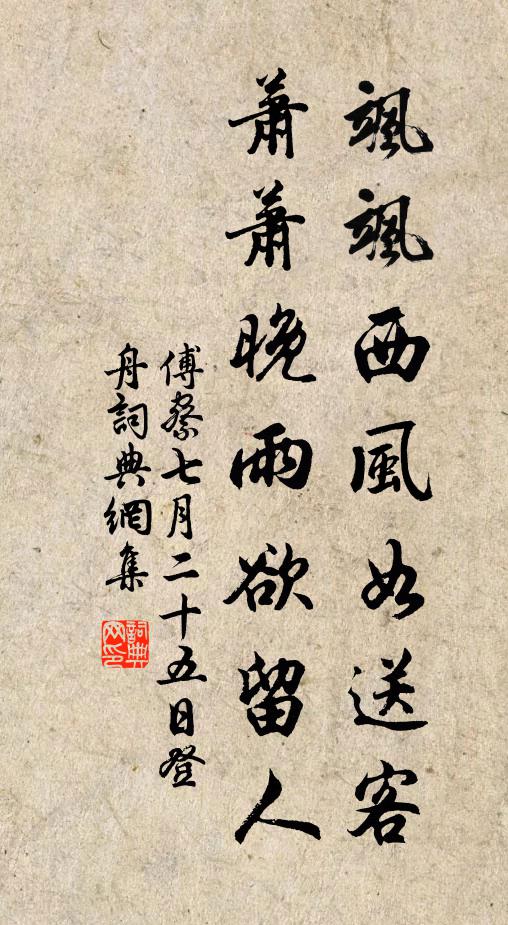 颯颯西風如送客
蕭蕭晚雨欲留人
傅察七月二十五日登
舟詞典網集
詞典
网印